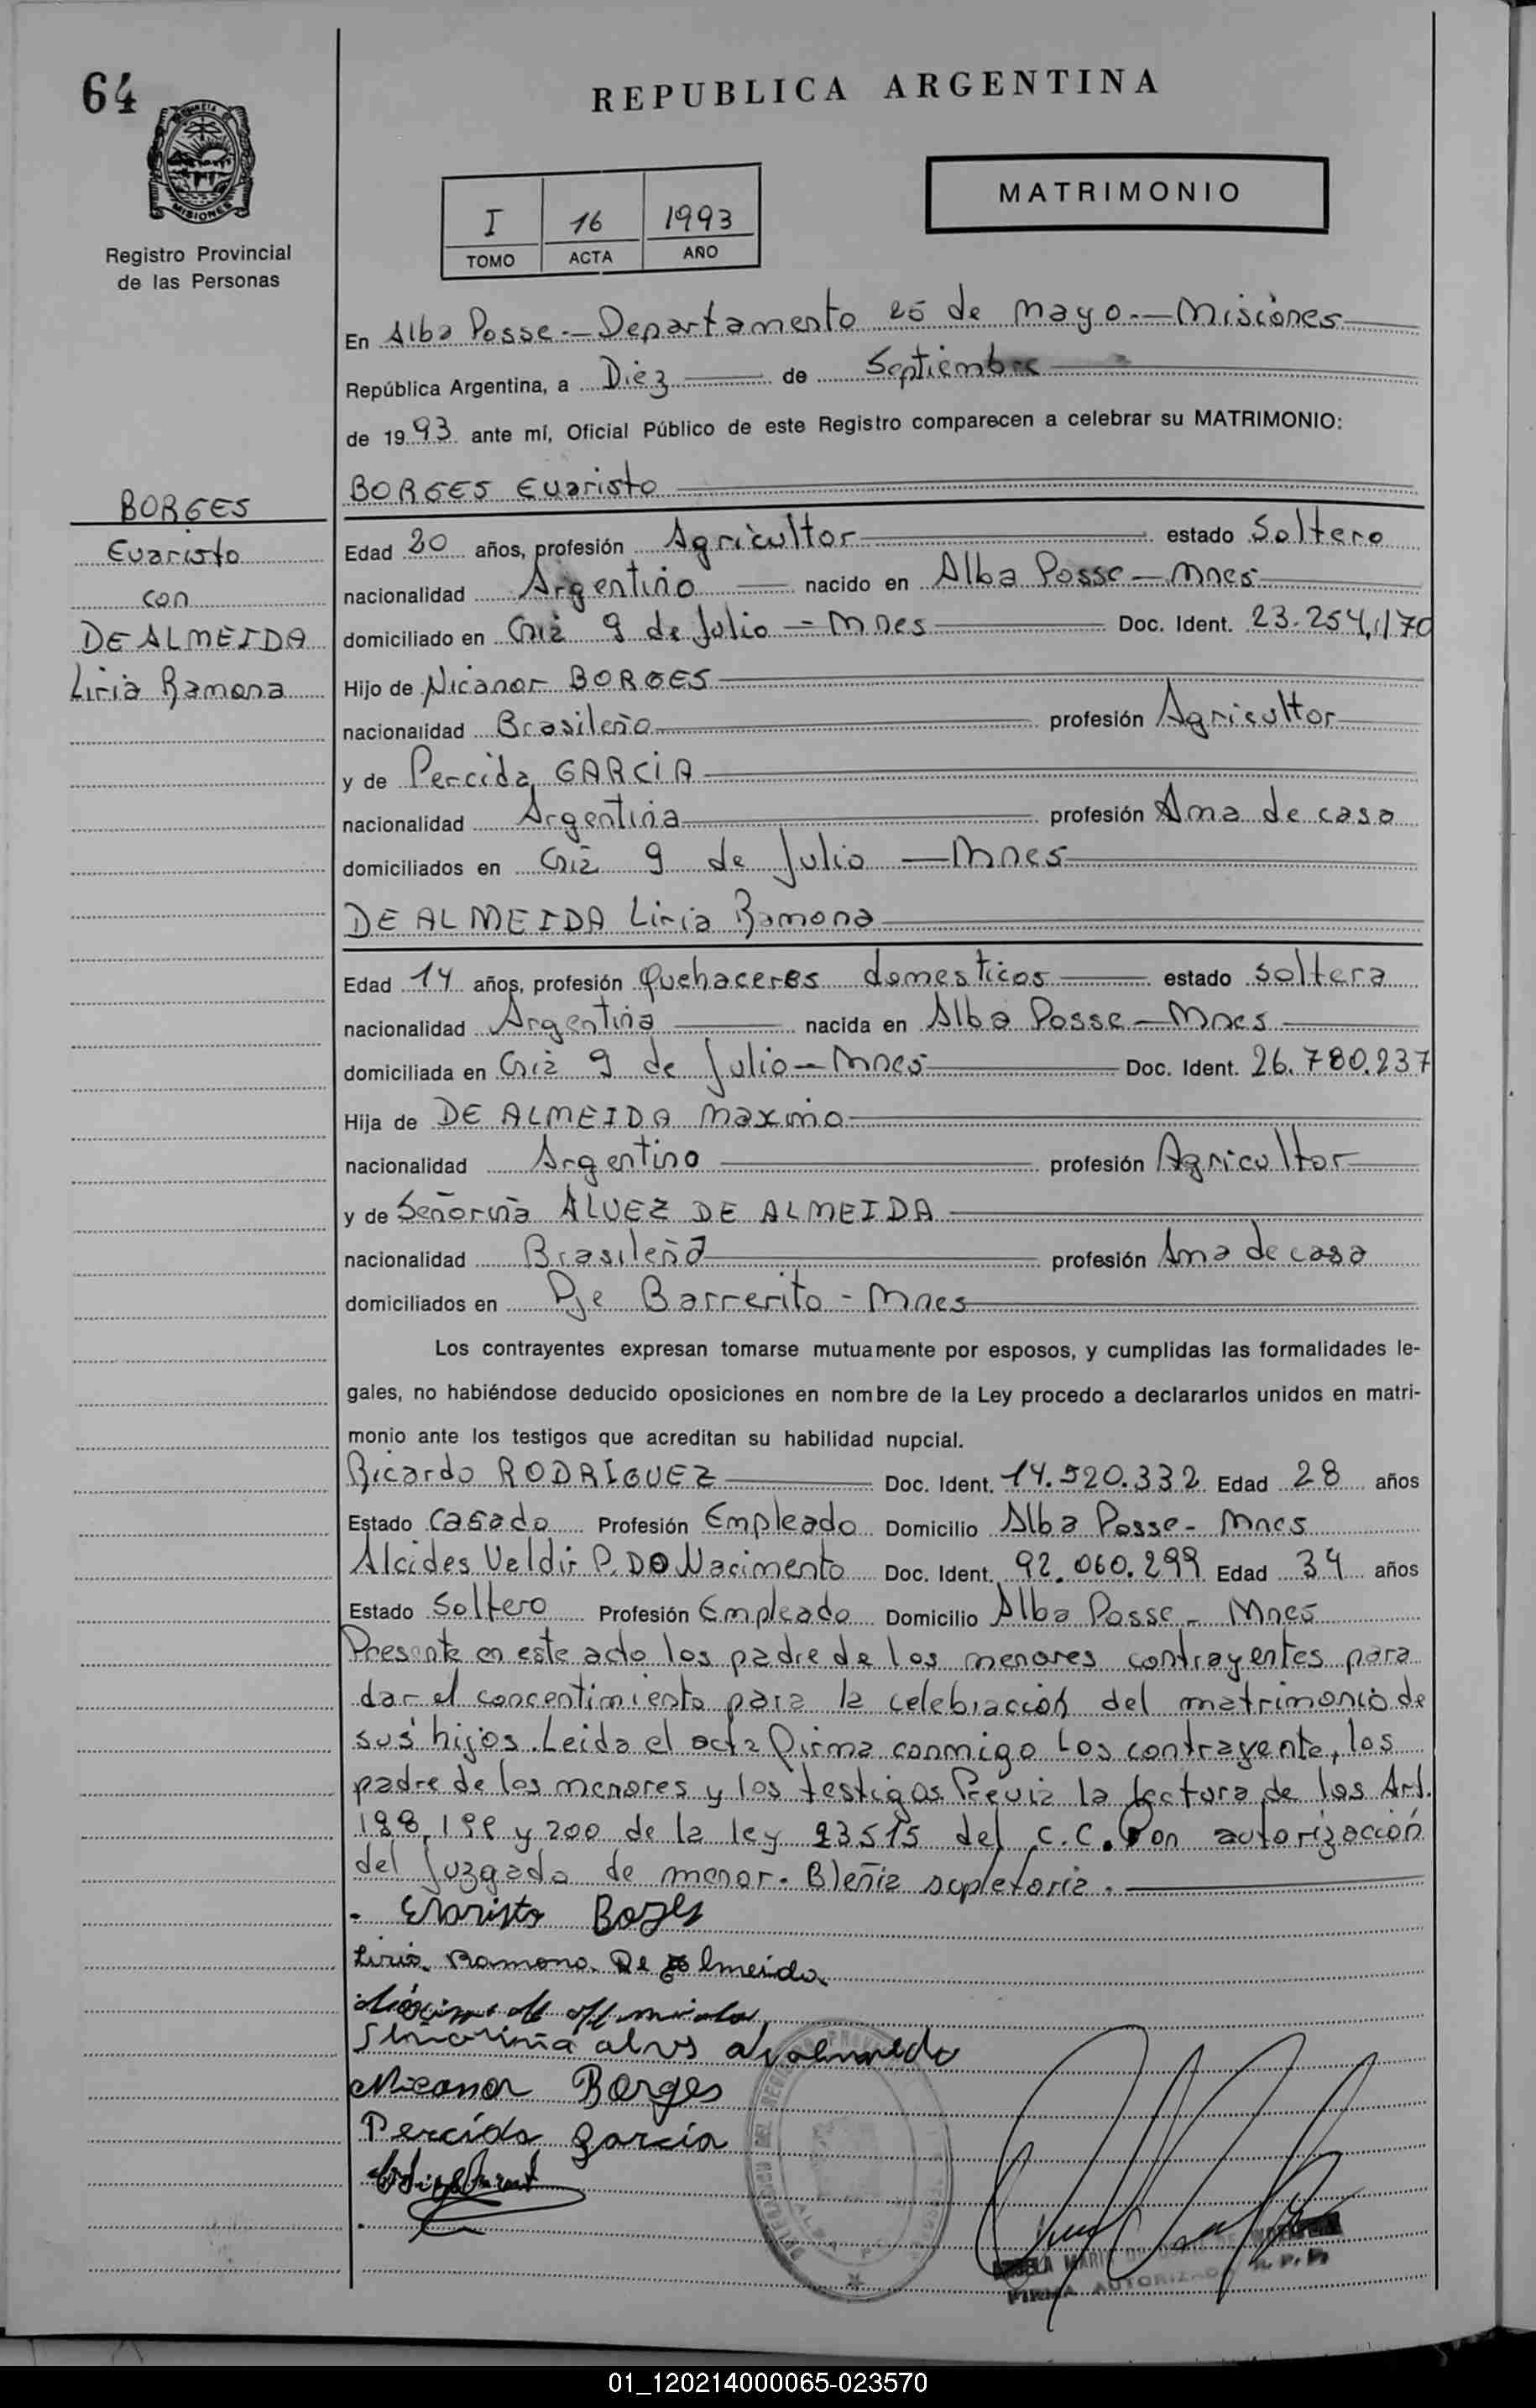 64
REPUBLICA ARGENTINA
MISIONES
Registro Provincial
de las Personas
I 16 1993
TOMO ACTA AÑO
MATRIMONIO
En Alba Posse.- Departamento 25 de Mayo.- Misiones
República Argentina, a Diez de Septiembre
de 1993 ante mí, Oficial Público de este Registro comparecen a celebrar su MATRIMONIO:
BORGES
Evaristo
con
DE ALMEIDA
Liria Ramona
BORGES Evaristo
Edad 20 años, profesión Agricultor estado Soltero
nacionalidad Argentino nacido en Alba Posse - Mnes
domiciliado en Cnia 9 de Julio - Mnes Doc. Ident. 23.254.170
Hijo de Nicanor BORGES
nacionalidad Brasileño profesión Agricultor
y de Percida GARCIA
nacionalidad Argentina profesión Ama de casa
domiciliados en Cnia 9 de Julio - Mnes
DE ALMEIDA Liria Ramona
Edad 14 años, profesión Quehaceres domesticos estado soltera
nacionalidad Argentina nacida en Alba Posse - Mnes
domiciliada en Cnia 9 de Julio - Mnes Doc. Ident. 26.780.237
Hija de DE ALMEIDA Maximo
nacionalidad Argentino profesión Agricultor
y de Señoriña ALVEZ DE ALMEIDA
nacionalidad Brasileña profesión Ama de casa
domiciliados en Pje Barrerito - Mnes
Los contrayentes expresan tomarse mutuamente por esposos, y cumplidas las formalidades le-
gales, no habiéndose deducido oposiciones en nombre de la Ley procedo a declararlos unidos en matri-
monio ante los testigos que acreditan su habilidad nupcial.
Ricardo RODRIGUEZ Doc. Ident. 14.520.332 Edad 28 años
Estado Casado Profesión Empleado Domicilio Alba Posse - Mnes
Alcides Veldir P. DO Nacimento Doc. Ident. 92.060.299 Edad 34 años
Estado Soltero Profesión Empleado Domicilio Alba Posse - Mnes
Presente en este acto los padre de los menores contrayentes para
dar el concentimiento para la celebracion del matrimonio de
sus hijos. Leida el acta firma conmigo los contrayente, los
padre de los menores y los testigos Previa la lectura de los Art.
198, 199 y 200 de la ley 23515 del C.C. Con autorización
del Juzgado de menor. supletoria.
Evaristo Borges
Liria Ramona De Almeida
Señoriña alves
Nicanor Borges
Percida Garcia
FIRMA AUTORIZADA R.P.P.
01_120214000065-023570